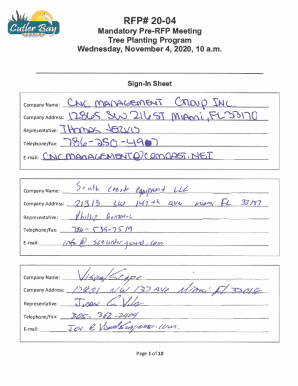 Cutler Bay
RFP# 20-04
Mandatory Pre-RFP Meeting
Tree Planting Program
Wednesday, November 4, 2020, 10 a.m.
Sign-In Sheet
Company Name: CNC MANAGEMENT GROUP INC.
Company Address: 12865 SW 216 ST MIAMI, FL 33170
Representative: THOMAS
Telephone/Fax: 786-250-4907
E-mail: CNCMANAGEMENT@COMCAST.NET
Company Name: South Coast equipment LLC
Company Address: 21313 SW 147th ave miami FL
Representative: Phillip
Telephone/Fax: 786-539-7519
E-mail: info@
Company Name: VisualScape
Company Address: 17801 NW 137 AVE MIAMI FL 33018
Representative:
Telephone/Fax: 305-362-2404
E-mail:
Page 1 of 10